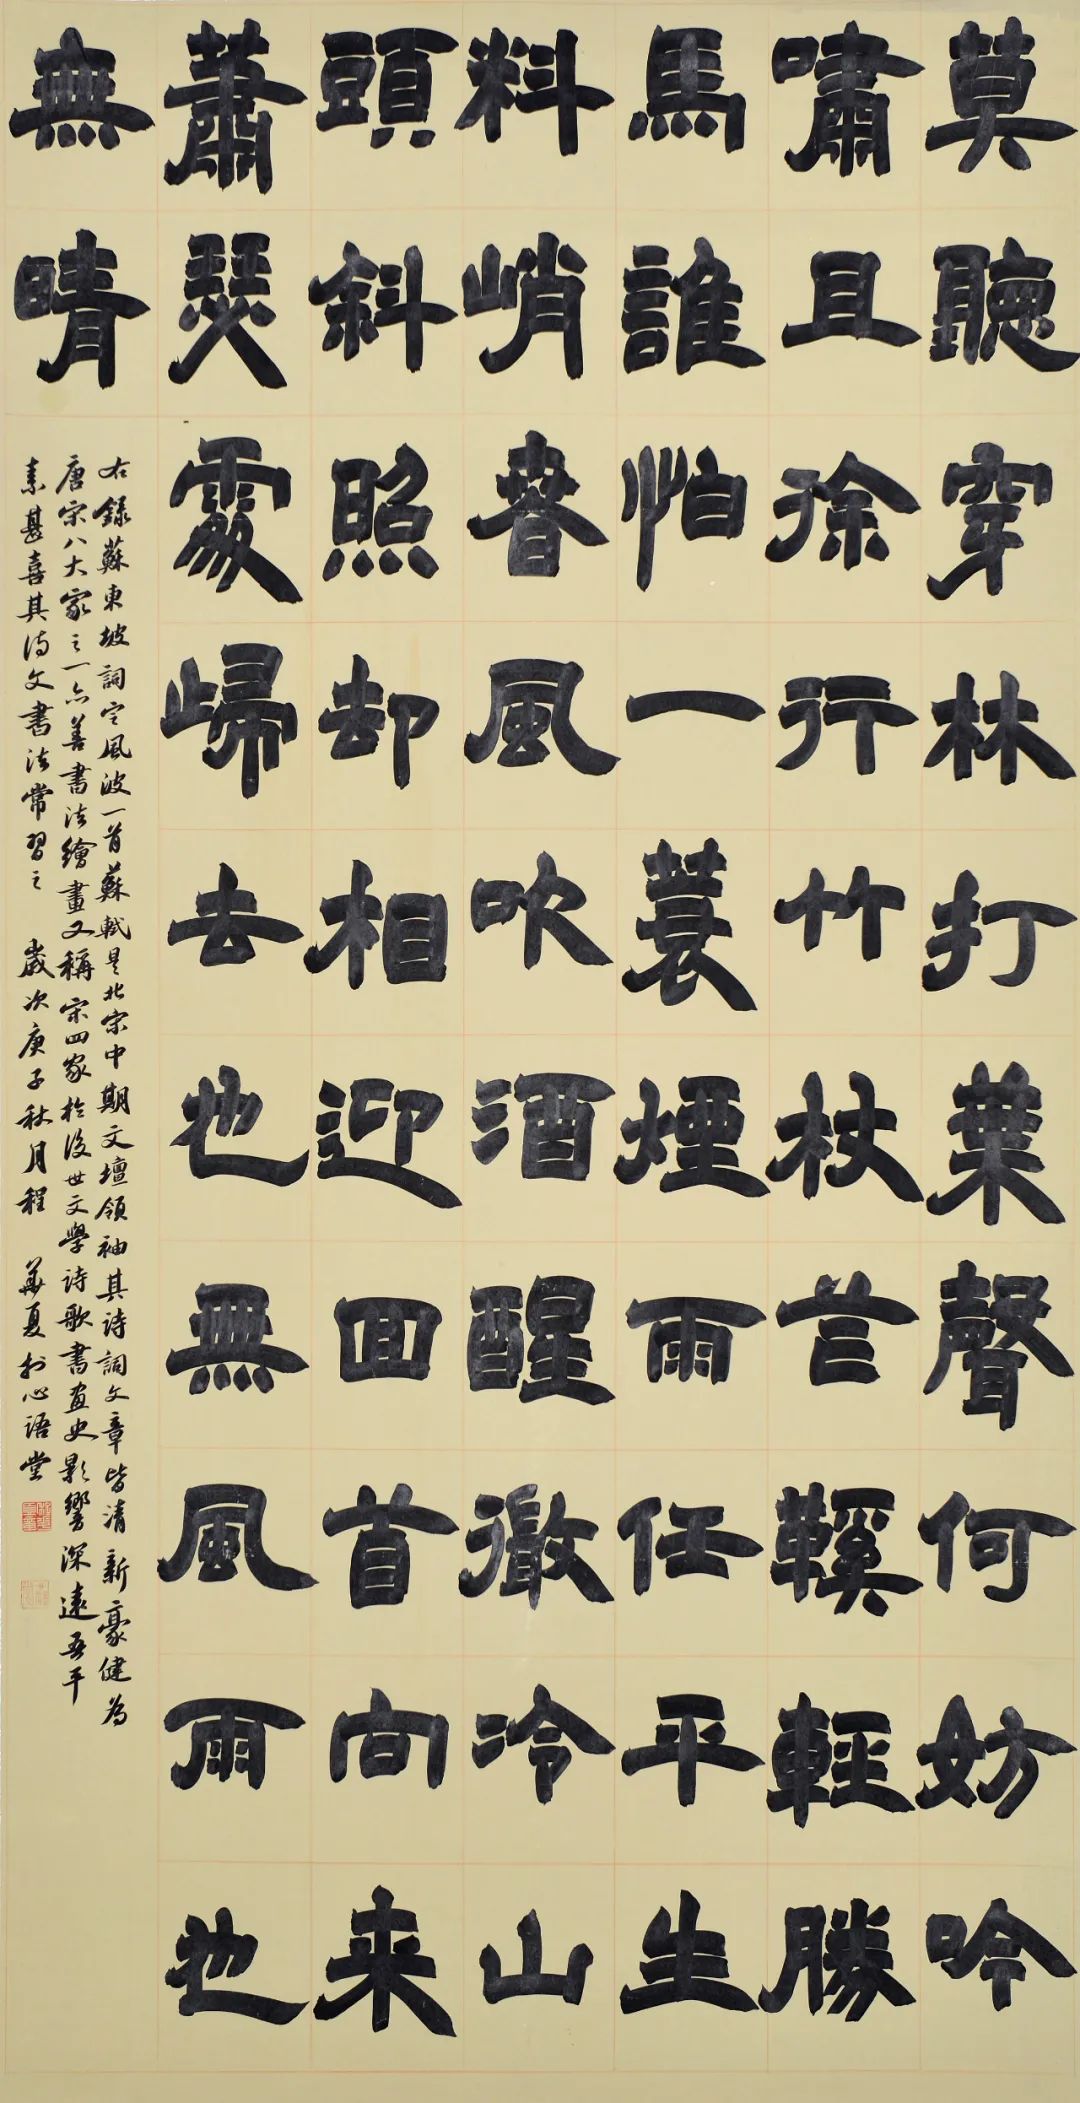 莫聽穿林打葉聲何妨吟
嘯且徐行竹杖芒鞵輕勝
馬誰怕一蓑煙雨任平生
料峭春風吹酒醒微冷山
頭斜照却相迎回首向来
蕭瑟處歸去也無風雨也
無晴
右錄蘇東坡詞定風波一首蘇軾是北宋中期文壇領袖其詩詞文章皆清新豪健為
唐宋八大家之一亦善書法繪畫又稱宋四家於後世文學詩歌書画史影響深遠吾平
素甚喜其詩文書法常習之 歲次庚子秋月程 華夏於心語堂